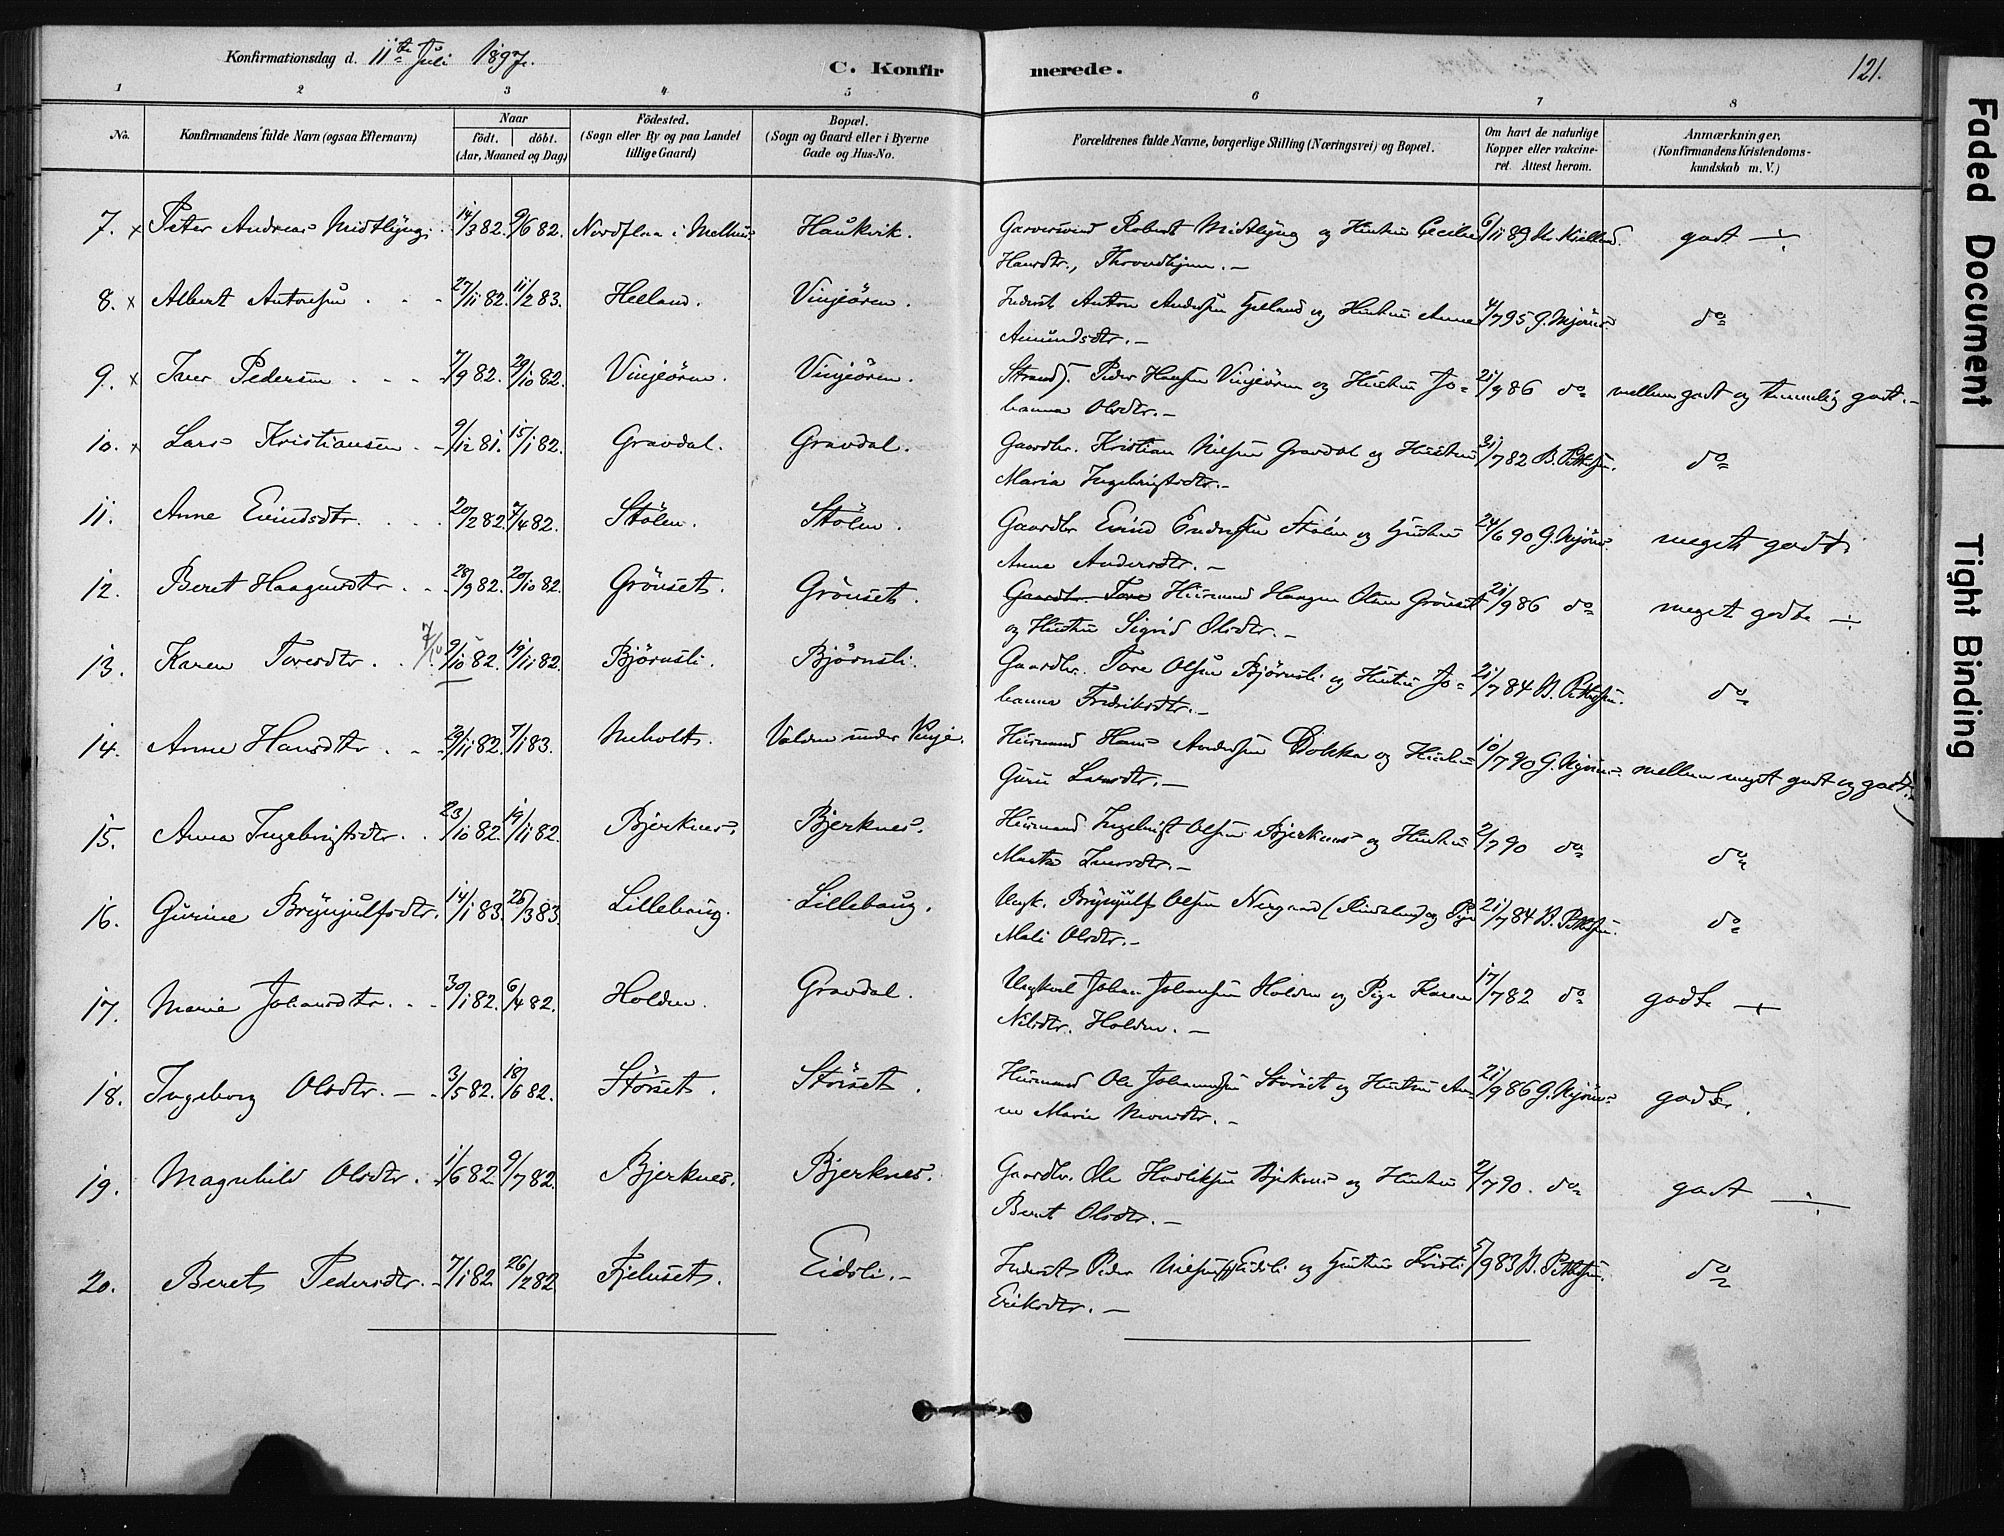 Konfirmationsdag d. 11te Juli 1897.
C. Konfirmerede.
121.
1 2 3 4 5 6 7 8
No.
Konfirmandens fulde Navn (ogsaa Efternavn)
Naar
født. døbt.
(Aar, Maaned og Dag)
Fødested.
(Sogn eller By og paa Landet
tillige Gaard)
Bopæl.
(Sogn og Gaard eller i Byerne
Gade og Hus-No.
Forældrenes fulde Navne, borgerlige Stilling (Næringsvei) og Bopæl.
Om havt de naturlige
Kopper eller vakcine-
ret. Attest herom.
Anmærkninger.
(Konfirmandens Kristendoms-
kundskab m. V.)
7. x Peter Andreas Midtlyng. 14/3 82. 9/6 82. Nordflaa i Melhus Haukvik. Garversvend Robert Midtlyng og Hustru Cecilie 6/11 89 godt ÷
Hansdtr., Throndhjem. —
8. x Albert Antonsen 27/11 82. 11/2 83. Helland. Vinjeøren. Inderst Anton Andersen Helland og Hustru Anne 4/7 95 do
Amundsdtr. —
9. x Iver Pedersen 7/9 82. 29/10 82. Vinjeøren. Vinjeøren. Strands. Peder Hansen Vinjeøren og Hustru Jo- 21/9 86 do mellem godt og temmelig godt. —
hanna Olsdtr. —
10. x Lars Kristiansen 9/12 81. 15/1 82. Gravdal. Gravdal. Gaardbr. Kristian Nielsen Gravdal og Hustru 31/7 82 do
Maria Ingebrigtsdtr. —
11. Anne Evindsdtr. 20/2 82. 7/4 82. Stølen. Stølen. Gaardbr Evind Endresen Stølen og Hustru 24/6 90 meget godt
Anne Andersdtr. —
12. Beret Haagensdtr 28/9 82. 20/10 82. Grønset. Grønset. Gaardbr. Tore Husmand Haagen Olsen Grønset 21/9 86 do meget godt ÷
og Hustru Sigrid Olsdtr. —
13. Karen Toresdtr. 7/10 9/10 82. 19/11 82. Bjørnsli. Bjørnsli. Gaardbr. Tore Olsen Bjørnsli og Hustru Jo- 21/7 84 do
hanna Fredriksdtr. —
14. Anne Hansdtr. 29/11 82. 7/1 83. Neholt. Valden under Vinje. Husmand Hans Andersen Dokka og Hustru 10/7 90 mellem meget godt og godt.
Guru Larsdtr. —
15. Anna Ingebrigtsdtr. 23/10 82. 19/11 82. Bjerknes. Bjerknes. Husmand Ingebrigt Olsen Bjerknes og Hustru 2/7 90 do do
Marte Iversdtr. —
16. Gurine Brynjulfsdtr. 14/1 83. 26/3 83. Lillebaug. Lillebaug. Ungk. Brynjulf Olsen Nergaard (Rindalen) og Pige 21/7 84 do
Mali Olsdtr. —
17. Marie Johansdtr. 30/1 82. 6/4 82. Holden. Gravdal. Ungkarl Johan Johansen Holden og Pige Karen 17/7 82 do godt ÷
Nilsdtr. Holden. —
18. Ingeborg Olsdtr. — 3/5 82. 18/6 82. Størset. Størset. Husmand Ole Johannesen Størset og Hustru An- 21/9 86 godt.
ne Marie Monsdtr. —
19. Magnhild Olsdtr. 1/6 82. 9/7 82. Bjerknes. Bjerknes. Gaardbr. Ole Havliksen Bjerknes og Hustru 2/7 90. do godt ÷
Beret Olsdtr. —
20. Beret Pedersdtr. 7/1 82. 26/2 82. Fjeluset. Eidsli. — Inderst Peder Nielsen Eidsli og Hustru Kristi 5/9 83 do
Eriksdtr. —
Faded Document
Tight Binding